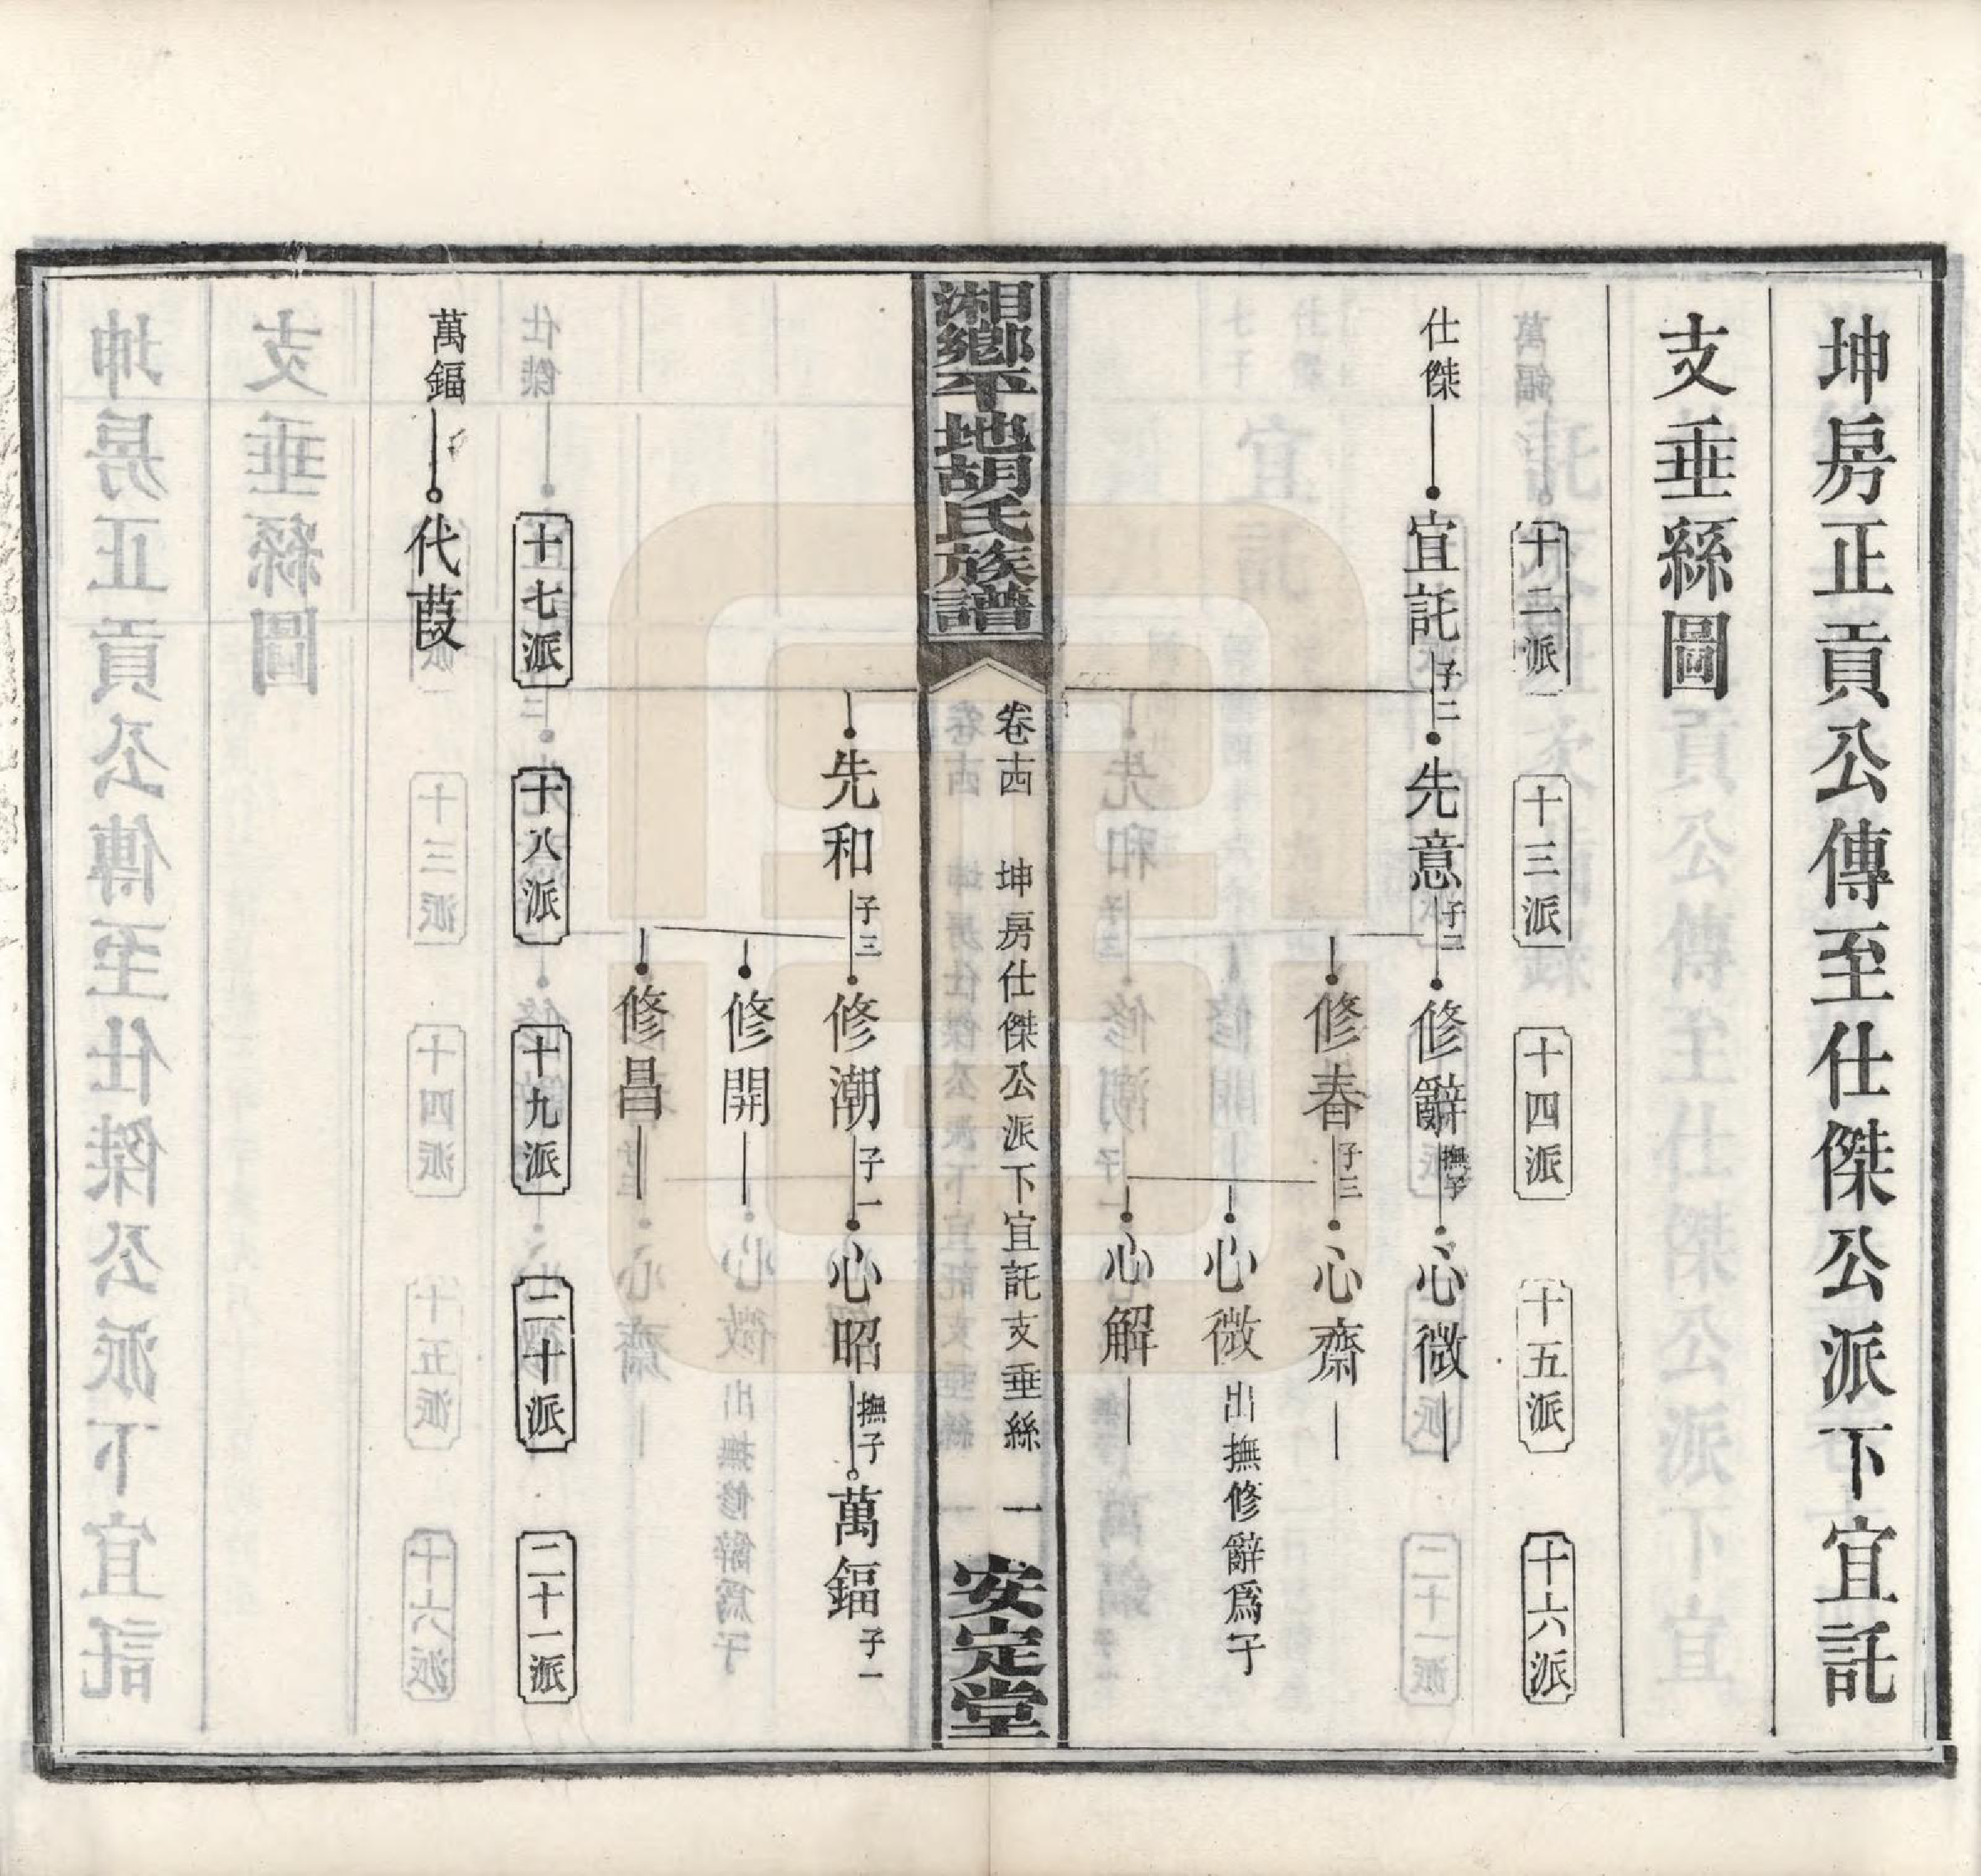 坤房正貢公傳至仕傑公派下宜託
支垂絲圖
十二派
十三派
十四派
十五派
十六派
仕傑
宜託 子二
先意 子二
修辭 撫子
心微
修春 子三
心齋
心微 出撫修辭爲子
心解
湘鄉平地胡氏族譜
卷十四 坤房仕傑公派下宜託支垂絲 一
安定堂
先和 子三
修潮 子一
心昭 撫子
萬鎦 子一
修開
修昌
十七派
十八派
十九派
二十派
二十一派
萬鎦
代葭